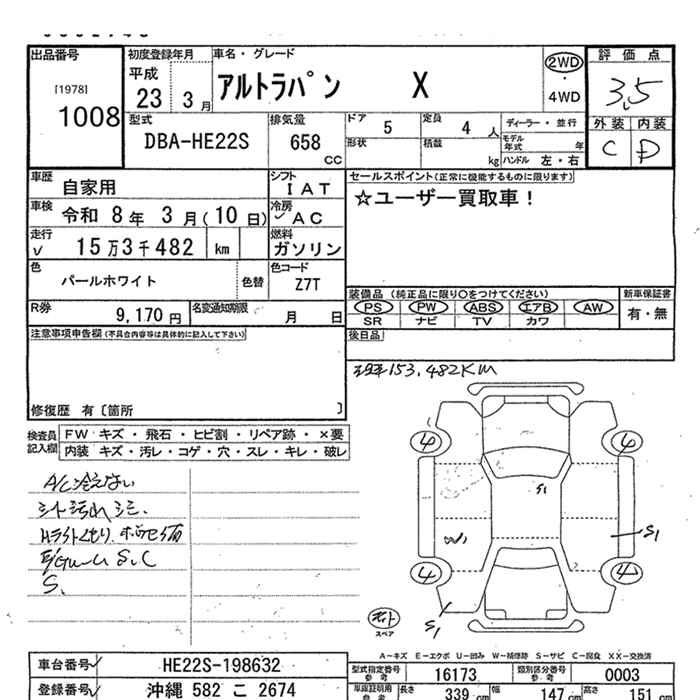 出品番号 初度登録年月 車名・グレード 評価点
[1978] 平成 アルトラパン X 2WD 3.5
1008 23 3月 4WD
外装 内装
C D
型式 排気量 ドア 5 定員 4人 ディーラー・並行
DBA-HE22S 658 CC 形状 積載 kg モデル年式 年
ハンドル 左・右
車歴 自家用 シフト IAT セールスポイント(正常に機能するものに限ります)
車検 令和 8年 3月(10日) 冷房 AC ☆ユーザー買取車!
走行 15万3千482 km 燃料 ガソリン
色 パールホワイト 色替 色コード Z7T
装備品 (純正品に限り○をつけてください) 新車保証書
R券 9,170円 名変通知期限 月 日 PS PW ABS エアB AW 有・無
SR ナビ TV カワ
注意事項申告欄(不具合内容等は具体的に記入して下さい) 後日品
153,482KM
修復歴 有〔箇所 〕
検査員記入欄 FW キズ・飛石・ヒビ割・リペア跡・×要
内装 キズ・汚レ・コゲ・穴・スレ・キレ・破レ
A/C冷えない
シート汚れ
S.C
S.
4 4
S1
W1 S1
4 4
S1
スペア
A-キズ E-エクボ U-凹み W-補修跡 S-サビ C-腐食 XX-交換済
車台番号 HE22S-198632 型式指定番号 参考 16173 類別区分番号 参考 0003
登録番号 沖縄 582 こ 2674 車庫証明用 参考 長さ 339cm 幅 147cm 高さ 151cm